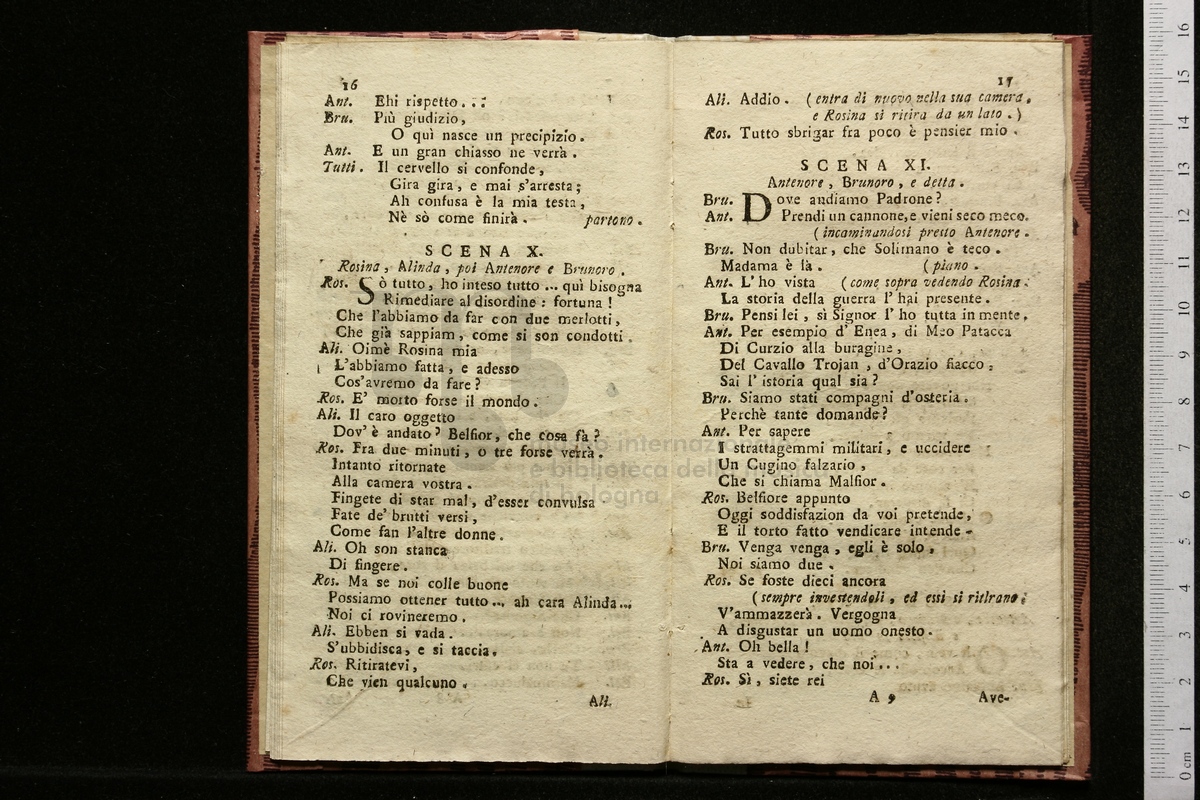 16
Ant. Ehi rispetto...
Bru. Più giudizio,
O quì nasce un precipizio.
Ant. E un gran chiasso ne verrà.
Tutti. Il cervello si confonde,
Gira gira, e mai s'arresta;
Ah confusa è la mia testa,
Nè sò come finirà. partono.
SCENA X.
Rosina, Alinda, poi Antenore e Brunoro.
Ros. Sò tutto, ho inteso tutto ... quì bisogna
Rimediare al disordine: fortuna!
Che l'abbiamo da far con due merlotti,
Che già sappiam, come si son condotti.
Ali. Oimè Rosina mia
L'abbiamo fatta, e adesso
Cos'avremo da fare?
Ros. E' morto forse il mondo.
Ali. Il caro oggetto
Dov' è andato? Belfior, che cosa fà?
Ros. Fra due minuti, o tre forse verrà.
Intanto ritornate
Alla camera vostra.
Fingete di star mal, d'esser convulsa
Fate de' brutti versi,
Come fan l'altre donne.
Ali. Oh son stanca
Di fingere.
Ros. Ma se noi colle buone
Possiamo ottener tutto... ah cara Alinda...
Noi ci rovineremo.
Ali. Ebben si vada.
S'ubbidisca, e si taccia.
Ros. Ritiratevi,
Che vien qualcuno.
Ali.
17
Ali. Addio. (entra di nuovo nella sua camera,
e Rosina si ritira da un lato.)
Ros. Tutto sbrigar fra poco è pensier mio.
SCENA XI.
Antenore, Brunoro, e detta.
Bru. Dove andiamo Padrone?
Ant. Prendi un cannone, e vieni seco meco.
(incaminandosi presto Antenore.
Bru. Non dubitar, che Solimano è teco.
Madama è là. (piano.
Ant. L' ho vista (come sopra vedendo Rosina.
La storia della guerra l' hai presente.
Bru. Pensi lei, sì Signor l' ho tutta in mente.
Ant. Per esempio d' Enea, di Meo Patacca
Di Curzio alla buragine,
Del Cavallo Trojan, d'Orazio fiacco,
Sai l' istoria qual sia?
Bru. Siamo stati compagni d'osteria.
Perchè tante domande?
Ant. Per sapere
I strattagemmi militari, e uccidere
Un Cugino falzario,
Che si chiama Malfior.
Ros. Belfiore appunto
Oggi soddisfazion da voi pretende,
E il torto fatto vendicare intende.
Bru. Venga venga, egli è solo,
Noi siamo due.
Ros. Se foste dieci ancora
(sempre investendoli, ed essi si ritirano.
V'ammazzerà. Vergogna
A disgustar un uomo onesto.
Ant. Oh bella!
Sta a vedere, che noi...
Ros. Sì, siete rei
A 9 Ave-